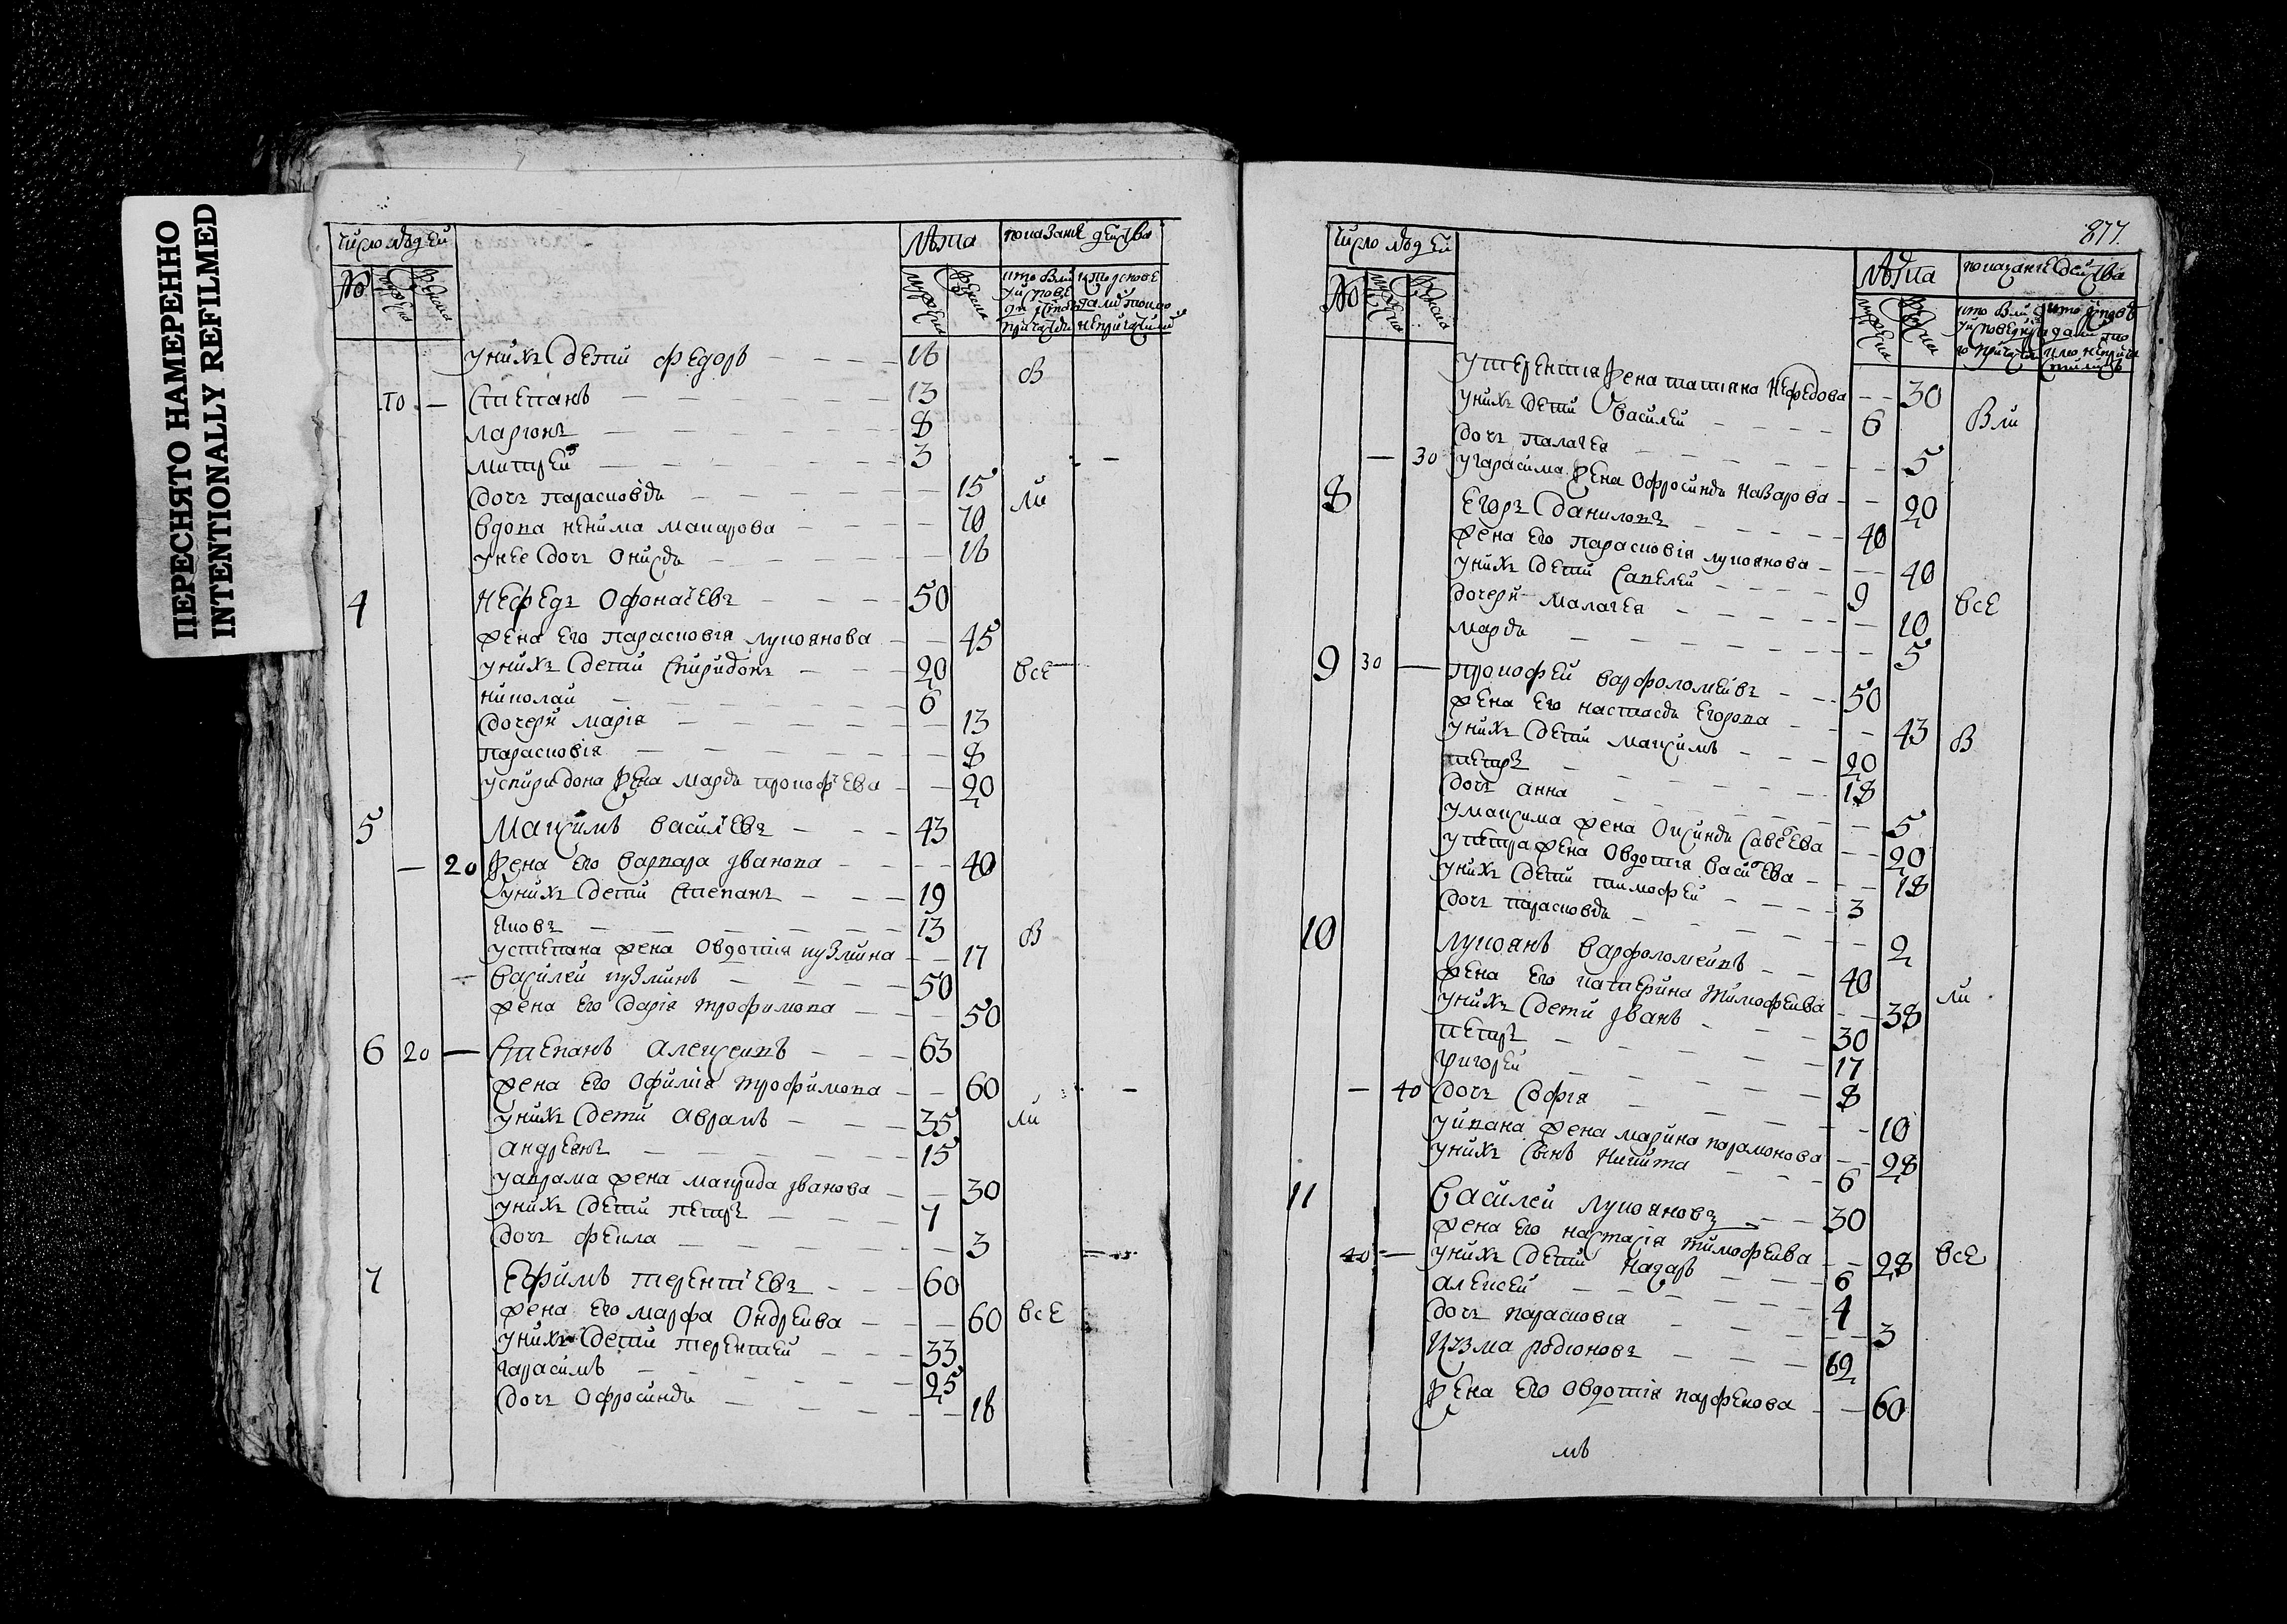 ПЕРЕСНЯТО НАМЕРЕННО
INTENTIONALLY REFILMED
число людей лѣта показание действа
№ мужска женска мужска женска
унихъ дети Федоръ — 16 В
10 — Степанъ — 13
Ларионъ — 8
Митрей — 3
дочь Парасковья — 15 ли
вдова Макарова — 70
унее дочь Онисья — 16
4 Нефедъ Офонасьевъ — 50
жена Его Парасковія Лукоянова — 45
унихъ дети Спиридонъ — 20 все
Николай — 6
дочери Марія — 13
Парасковія — 8
успиридона жена Марья Прокофьева — 20
5 Максимъ Васильевъ — 43
— 20 жена Его Варвара Иванова — 40
унихъ дети Степанъ — 19
Яковъ — 13 В
устепана жена Овдотія Кузмина — 17
Василей Кузминъ — 50
жена Его Дарія Трофимова — 50
6 20 — Степанъ Алексеивъ — 63
жена Его Офимія Трофимова — 60
унихъ дети Аврамъ — 35 ли
Андреянъ — 15
уаврама жена Иванова — 30
унихъ дети Петръ — 7
дочь Фекла — 3
7 Ефимъ Терентьевъ — 60
жена Его Марфа Ондреива — 60 все
унихъ дети Терентей — 33
Гарасимъ — 25
дочь Офросинья — 18
877
число людей лѣта показание действа
№ мужска женска мужска женска
утерентія жена Татіяна Нефедова — 30
унихъ дети Василей — 6 Вли
дочь Палагея — 5
— 30 угарасима жена Офросинья Назарова — 20
8 Егоръ Даниловъ — 40
жена Его Парасковія Лукоянова — 40
унихъ дети Савелей — 9 все
дочери Малагея — 10
Марья — 5
9 30 — Прокофей Варфоломеивъ — 50
жена Его Настасья Егорова — 43 В
унихъ дети Максимъ — 20
Петръ — 18
дочь Анна — 5
умаксима жена Оксинья Савельева — 20
упетра жена Овдотія Васильева — 18
унихъ дети Тимофей — 3
дочь Парасковья — 2
10 Лукоянъ Варфоломеивъ — 40
жена Его Катерина Тимофеива — 38 ли
унихъ дети Иванъ — 30
Петръ — 17
Григорей — 8
— 40 дочь Софія — 10
уивана жена Марина Парамонова — 28
унихъ сынъ Никита — 6
11 Василей Лукояновъ — 30
жена Его Настасія Тимофеива — 28 все
40 — унихъ дети Назаръ — 6
Алексей — 4
дочь Парасковія — 3
Кузма Родионовъ — 62
жена Его Овдотія Парфенова — 60